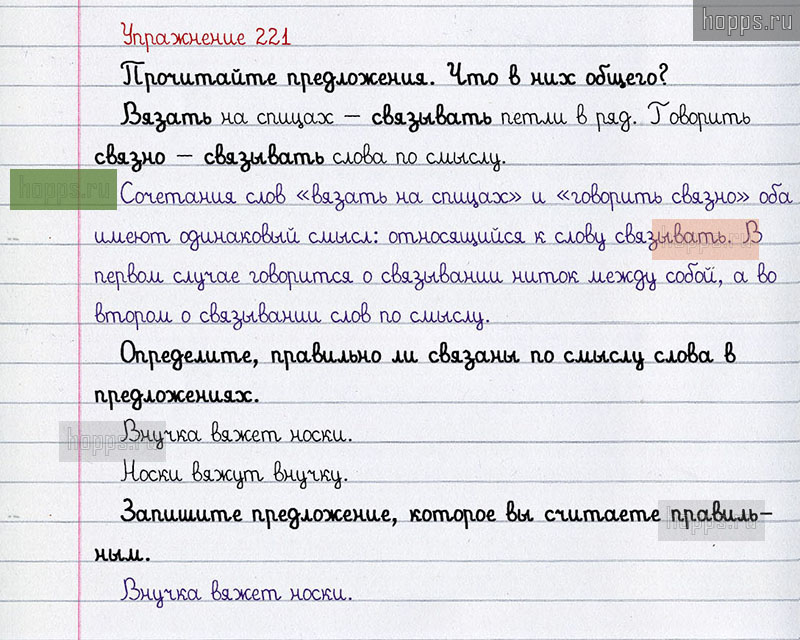 hopps.ru
Упражнение 221
Прочитайте предложения. Что в них общего?
Вязать на спицах – связывать петли в ряд. Говорить
связно – связывать слова по смыслу.
hopps.ru
Сочетания слов «вязать на спицах» и «говорить связно» оба
имеют одинаковый смысл: относящийся к слову связывать. В
hopps.ru
первом случае говорится о связывании ниток между собой, а во
втором о связывании слов по смыслу.
Определите, правильно ли связаны по смыслу слова в
предложениях.
Внучка вяжет носки.
hopps.ru
Носки вяжут внучку.
Запишите предложение, которое вы считаете правиль-
hopps.ru
ным.
Внучка вяжет носки.